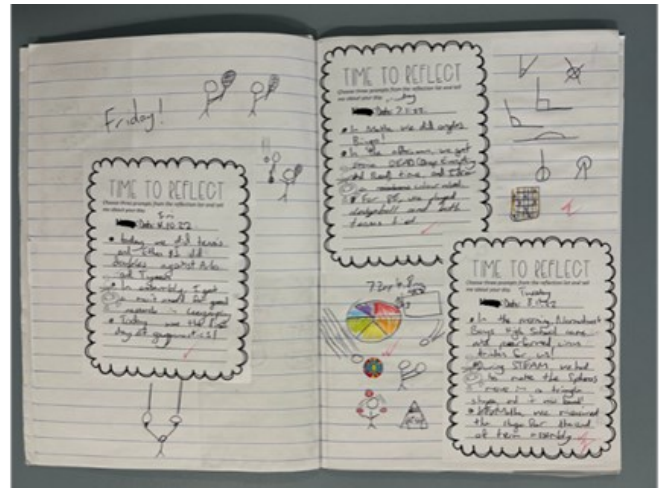 Friday!
TIME TO REFLECT
Choose three prompts from the reflection list and tell
me about your day.
Fri
Date:
• Today we did tennis
and Ethan & I did
doubles against Arlo
and
• In assembly, I got
a merit award for good
research in Geography
• Today was the first
day of gymnastics!
TIME TO REFLECT
Choose three prompts from the reflection list and tell
me about your day.
Date:
• In Maths we did angles
Bingo!
• In the afternoon, we got
some DEAR (Drop Everything
And Read) time, and I
a rainbow
• For PE, we played
dodgeball and both
teams
TIME TO REFLECT
Choose three prompts from the reflection list and tell
me about your day.
Tuesday
Date:
• In the morning, Normanhurst
Boys High School came
and performed circus
tricks for us!
• During STEAM, we had
to make the Spheros
move in a triangle
shape and it was hard!
Maths, we rehearsed
the stage for the end
of term assembly